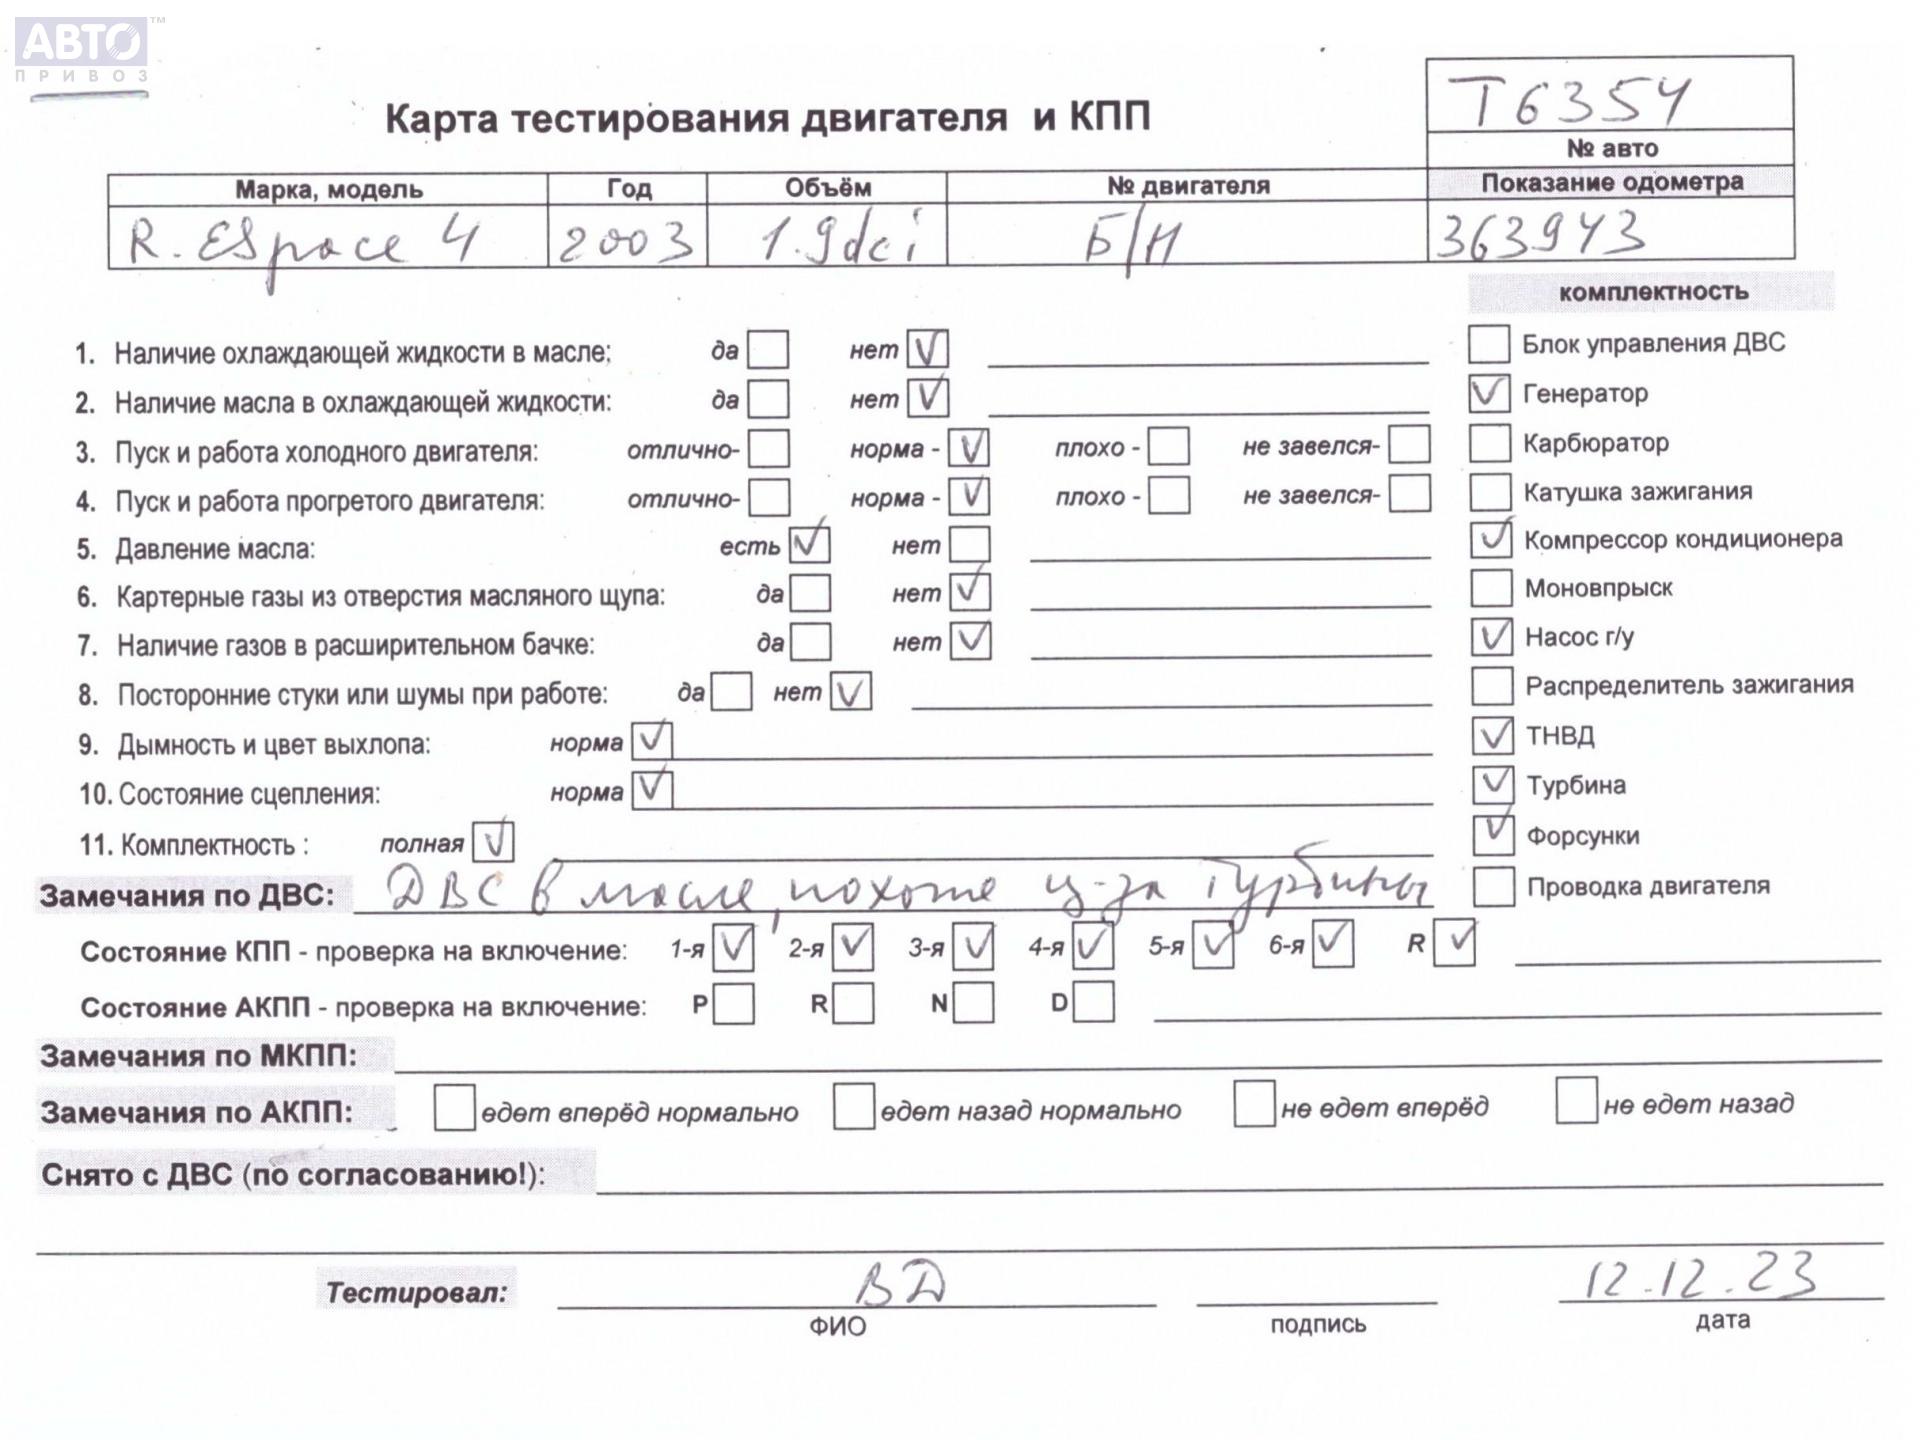 АВТО™
ПРИВОЗ
Т6354
Карта тестирования двигателя и КПП
№ авто
Марка, модель Год Объём № двигателя Показание одометра
R. Espace 4 2003 1.9dci Б/Н 363943
комплектность
1. Наличие охлаждающей жидкости в масле; да нет ✓ Блок управления ДВС
2. Наличие масла в охлаждающей жидкости: да нет ✓ ✓ Генератор
3. Пуск и работа холодного двигателя: отлично- норма - ✓ плохо - не завелся- Карбюратор
4. Пуск и работа прогретого двигателя: отлично- норма - ✓ плохо - не завелся- Катушка зажигания
5. Давление масла: есть ✓ нет ✓ Компрессор кондиционера
6. Картерные газы из отверстия масляного щупа: да нет ✓ Моновпрыск
7. Наличие газов в расширительном бачке: да нет ✓ ✓ Насос г/у
8. Посторонние стуки или шумы при работе: да нет ✓ Распределитель зажигания
9. Дымность и цвет выхлопа: норма ✓ ✓ ТНВД
10. Состояние сцепления: норма ✓ ✓ Турбина
11. Комплектность : полная ✓ ✓ Форсунки
Замечания по ДВС: ДВС в масле, похоже из-за турбины Проводка двигателя
Состояние КПП - проверка на включение: 1-я ✓ 2-я ✓ 3-я ✓ 4-я ✓ 5-я ✓ 6-я ✓ R ✓
Состояние АКПП - проверка на включение: P R N D
Замечания по МКПП:
Замечания по АКПП: едет вперёд нормально едет назад нормально не едет вперёд не едет назад
Снято с ДВС (по согласованию!):
Тестировал: ВД 12.12.23
ФИО подпись дата